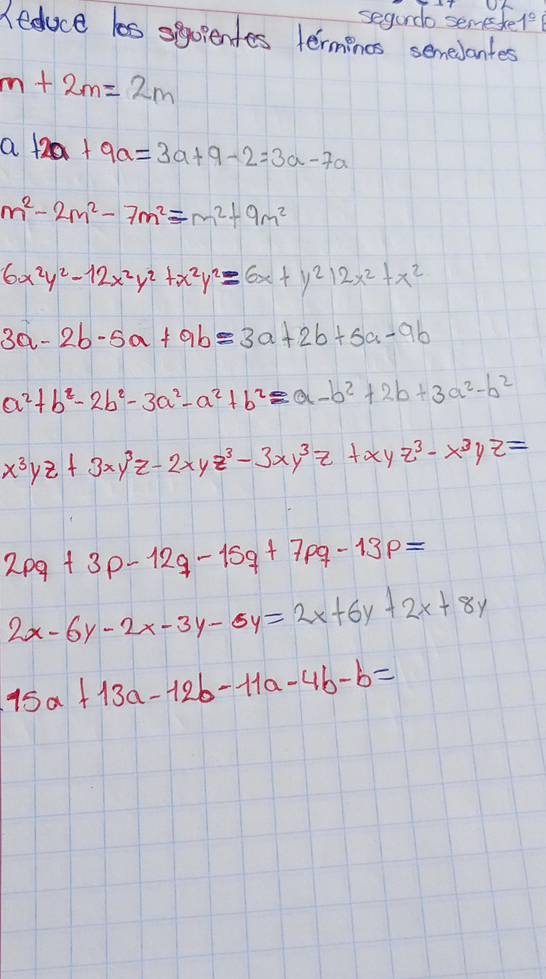 segundo semestre 1º
Reduce los siguientes términos semejantes
m + 2m = 2m
a + 2a + 9a = 3a + 9 - 2 = 3a - 7a
m² - 2m² - 7m² = m² + 9m²
6x²y² - 12x²y² + x²y² = 6x + y² 12x² + x²
3a - 2b - 5a + 9b = 3a + 2b + 5a - 9b
a² + b² - 2b² - 3a² - a² + b² = a - b² + 2b + 3a² - b²
x³yz + 3xy³z - 2xyz³ - 3xy³z + xyz³ - x³yz =
2pq + 3p - 12q - 15q + 7pq - 13p =
2x - 6y - 2x - 3y - 5y = 2x + 6y + 2x + 8y
15a + 13a - 12b - 11a - 4b - b =